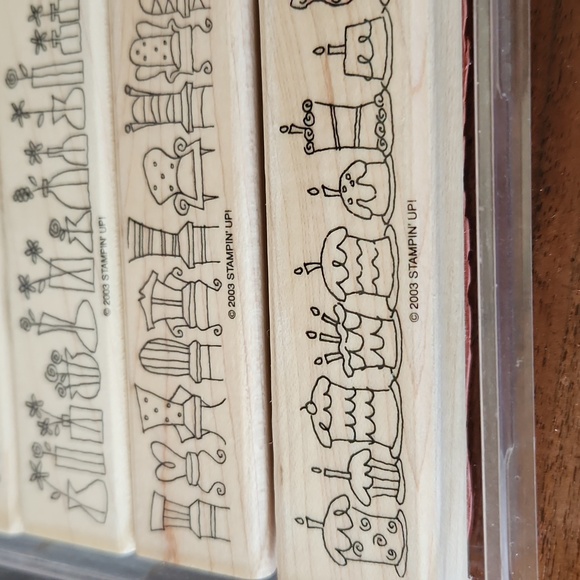 © 2003 STAMPIN' UP!
© 2003 STAMPIN' UP!
© 2003 STAMPIN' UP!